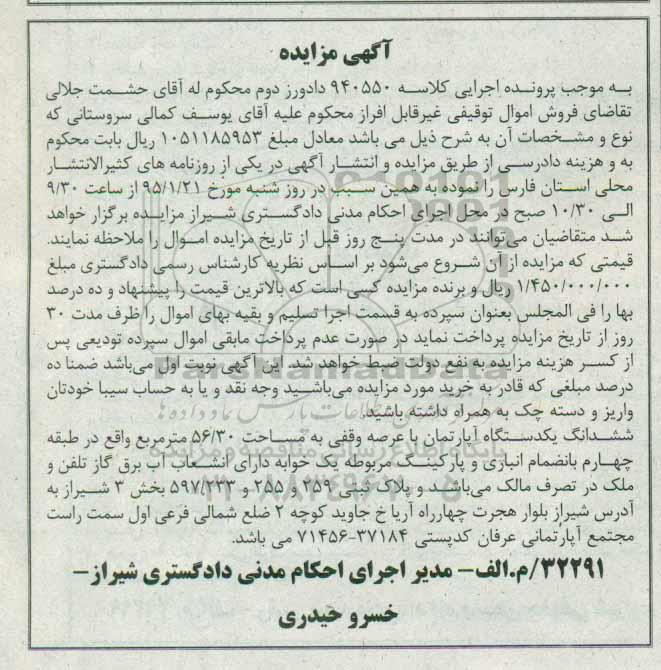 آگهی مزایده
به موجب پرونده اجرایی کلاسه ۹۴۰۵۵۰ دادورز دوم محکوم له آقای حشمت جلالی
تقاضای فروش اموال توقیفی غیرقابل افراز محکوم علیه آقای یوسف کمالی سروستانی که
نوع و مشخصات آن به شرح ذیل می باشد معادل مبلغ ۱۰۵۱۱۸۵۹۵۳ ریال بابت محکوم
به و هزینه دادرسی از طریق مزایده و انتشار آگهی در یکی از روزنامه های کثیرالانتشار
محلی استان فارس را نموده به همین سبب در روز شنبه مورخ ۹۵/۱/۲۱ از ساعت ۹/۳۰
الی ۱۰/۳۰ صبح در محل اجرای احکام مدنی دادگستری شیراز مزایده برگزار خواهد
شد متقاضیان می‌توانند در مدت پنج روز قبل از تاریخ مزایده اموال را ملاحظه نمایند.
قیمتی که مزایده از آن شروع می‌شود بر اساس نظریه کارشناس رسمی دادگستری مبلغ
۱/۴۵۰/۰۰۰/۰۰۰ ریال و برنده مزایده کسی است که بالاترین قیمت را پیشنهاد و ده درصد
بها را فی المجلس بعنوان سپرده به قسمت اجرا تسلیم و بقیه بهای اموال را ظرف مدت ۳۰
روز از تاریخ مزایده پرداخت نماید در صورت عدم پرداخت مابقی اموال سپرده تودیعی پس
از کسر هزینه مزایده به نفع دولت ضبط خواهد شد. این آگهی نوبت اول می‌باشد ضمنا ده
درصد مبلغی که قادر به خرید مورد مزایده می‌باشید وجه نقد و یا به حساب سیبا خودتان
واریز و دسته چک به همراه داشته باشید.
ششدانگ یکدستگاه آپارتمان با عرصه وقفی به مساحت ۵۶/۳۰ مترمربع واقع در طبقه
چهارم بانضمام انباری و پارکینگ مربوطه یک خوابه دارای انشعاب آب برق گاز تلفن و
ملک در تصرف مالک می‌باشد و پلاک ثبتی ۲۵۹ و ۲۵۵ و ۵۹۲/۲۳۳ بخش ۳ شیراز به
آدرس شیراز بلوار هجرت چهارراه آریا خ جاوید کوچه ۲ ضلع شمالی فرعی اول سمت راست
مجتمع آپارتمانی عرفان کدپستی ۳۷۱۸۴-۷۱۴۵۶ می باشد.
۳۲۲۹۱/م.الف- مدیر اجرای احکام مدنی دادگستری شیراز-
خسرو حیدری
ParsNamadData
پایگاه اطلاع رسانی مناقصه و مزایده